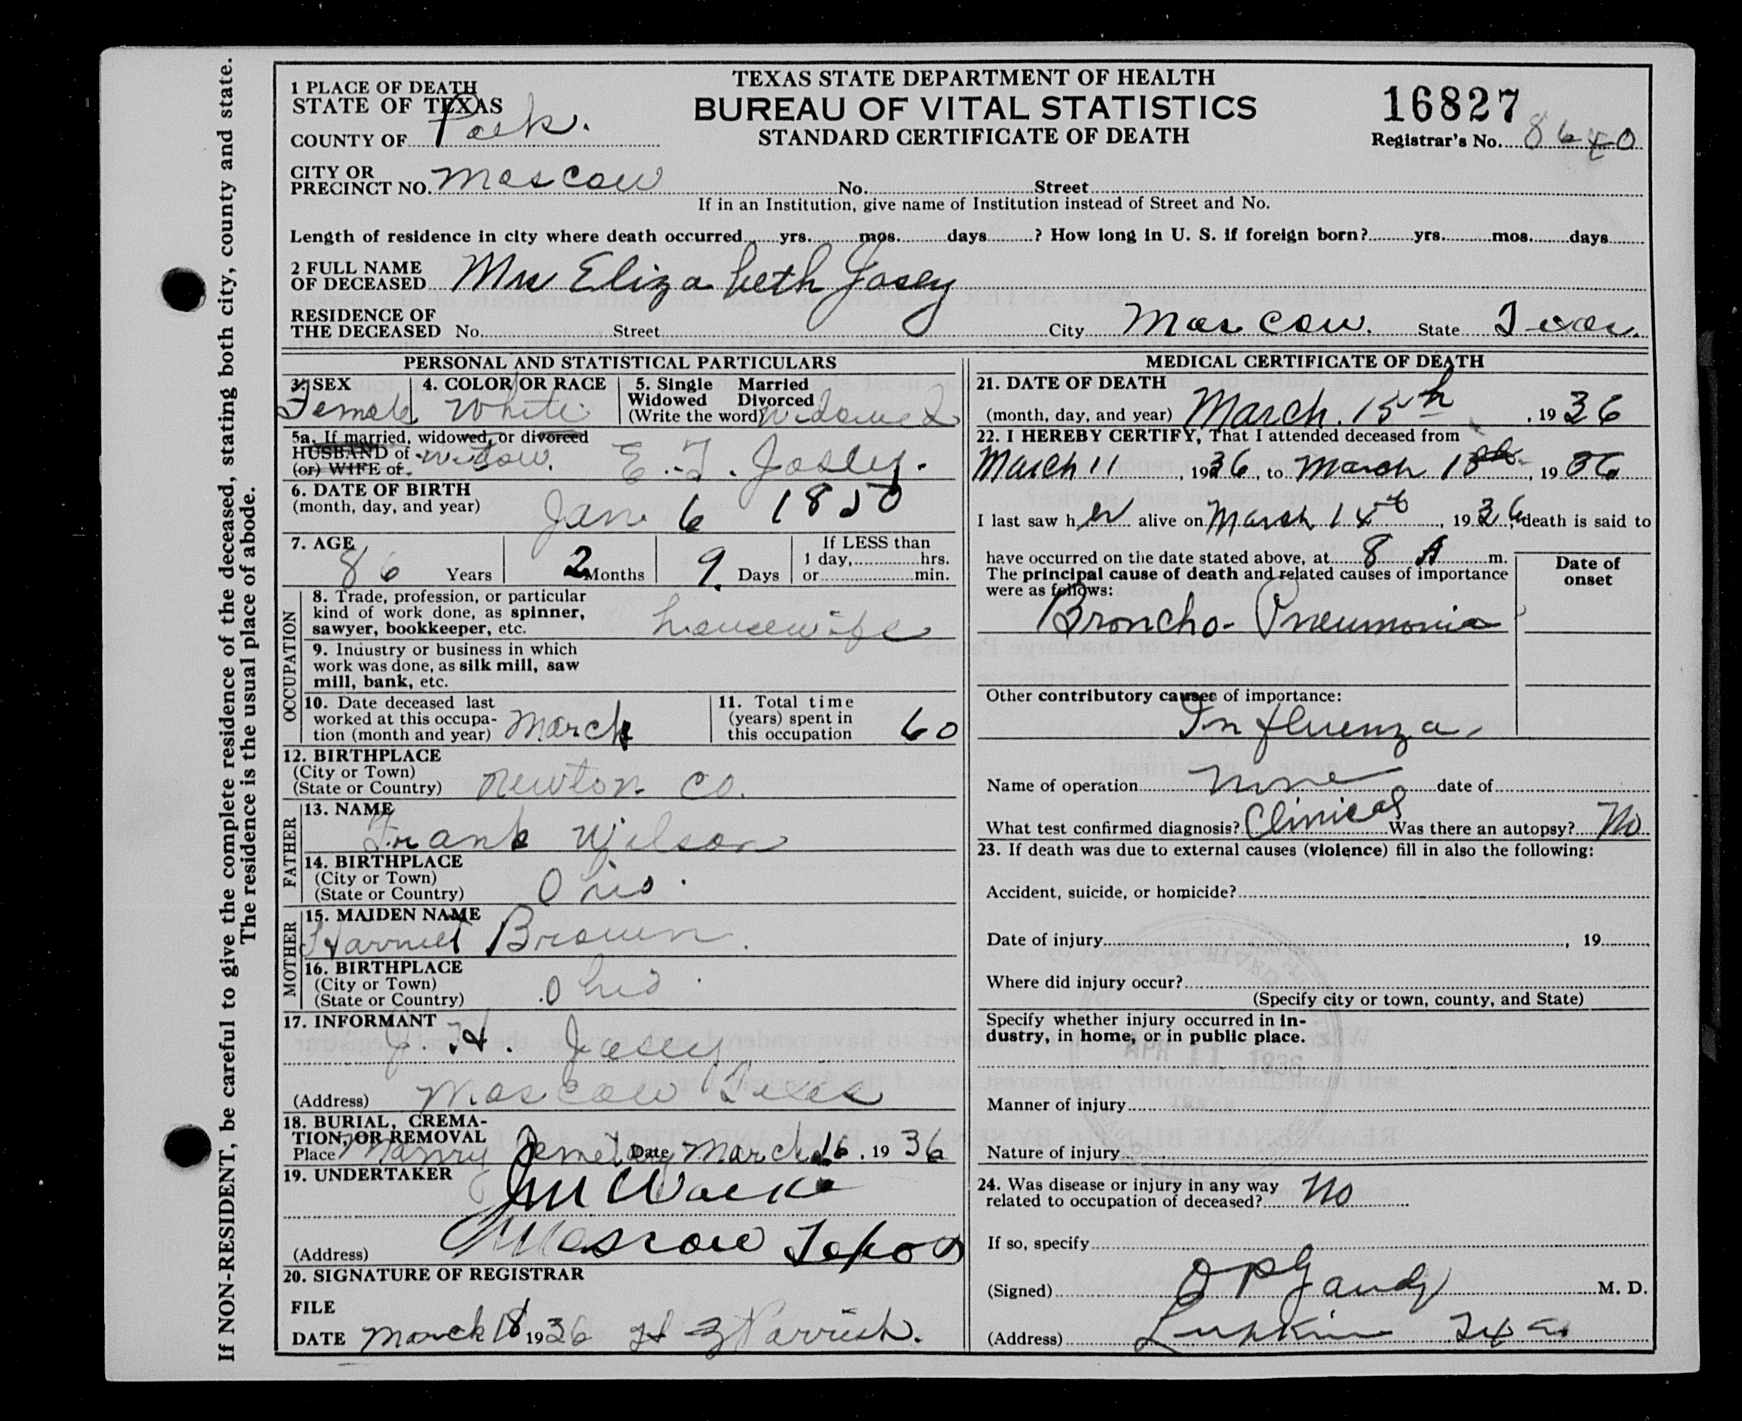 If NON-RESIDENT, be careful to give the complete residence of the deceased, stating both city, county and state.
The residence is the usual place of abode.
1 PLACE OF DEATH
STATE OF TEXAS
COUNTY OF Polk.
TEXAS STATE DEPARTMENT OF HEALTH
BUREAU OF VITAL STATISTICS
STANDARD CERTIFICATE OF DEATH
16827
Registrar's No. 8640
CITY OR
PRECINCT NO. Moscow No. Street
If in an Institution, give name of Institution instead of Street and No.
Length of residence in city where death occurred yrs. mos. days ? How long in U. S. if foreign born? yrs. mos. days
2 FULL NAME
OF DECEASED Mrs Elizabeth Josey
RESIDENCE OF
THE DECEASED No. Street City Moscow. State Texas.
PERSONAL AND STATISTICAL PARTICULARS
3. SEX Female
4. COLOR OR RACE White
5. Single Married
Widowed Divorced
(Write the word) Widowed
5a. If married, widowed, or divorced
HUSBAND of widow. E. T. Josey.
(or) WIFE of
6. DATE OF BIRTH
(month, day, and year) Jan 6 1850
7. AGE 86 Years 2 Months 9 Days
If LESS than
1 day, hrs.
or min.
OCCUPATION
8. Trade, profession, or particular
kind of work done, as spinner,
sawyer, bookkeeper, etc. housewife
9. Industry or business in which
work was done, as silk mill, saw
mill, bank, etc.
10. Date deceased last
worked at this occupa-
tion (month and year) March
11. Total time
(years) spent in
this occupation 60
12. BIRTHPLACE
(City or Town)
(State or Country) Newton Co.
FATHER
13. NAME
Frank Wilson
14. BIRTHPLACE
(City or Town)
(State or Country) Ohio.
MOTHER
15. MAIDEN NAME
Harriet Brown.
16. BIRTHPLACE
(City or Town)
(State or Country) Ohio.
17. INFORMANT
J. H. Josey
(Address) Moscow Texas
18. BURIAL, CREMA-
TION, OR REMOVAL
Place Manry Cemetery Date March 16, 1936
19. UNDERTAKER
J M
(Address) Moscow Texas
20. SIGNATURE OF REGISTRAR
FILE
DATE March 18 1936 Parrish.
MEDICAL CERTIFICATE OF DEATH
21. DATE OF DEATH
(month, day, and year) March. 15th, 1936
22. I HEREBY CERTIFY, That I attended deceased from
March 11, 1936, to March 15th, 1936
I last saw her alive on March 14th, 1936, death is said to
have occurred on the date stated above, at 8 A m.
The principal cause of death and related causes of importance
were as follows:
Date of
onset
Broncho-Pneumonia
Other contributory causes of importance:
Influenza
Name of operation None date of
What test confirmed diagnosis? Clinical Was there an autopsy? No
23. If death was due to external causes (violence) fill in also the following:
Accident, suicide, or homicide?
Date of injury, 19
Where did injury occur?
(Specify city or town, county, and State)
Specify whether injury occurred in in-
dustry, in home, or in public place.
Manner of injury
Nature of injury
24. Was disease or injury in any way
related to occupation of deceased? No
If so, specify
(Signed) O P Gandy M. D.
(Address) Lufkin Texas